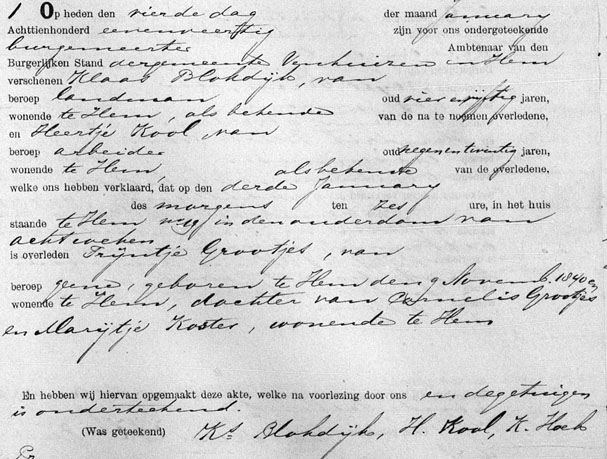 1 Op heden den vierde dag der maand January
Achttienhonderd eenenveertig zijn voor ons ondergeteekende
burgemeester Ambtenaar van den
Burgerlijken Stand dergemeente Venhuizen en Hem
verschenen Klaas Blokdijk, van
beroep landman oud vier en vijftig jaren,
wonende te Hem, als bekende van de na te noemen overledene,
en Heertje Kool, van
beroep arbeider oud negenentwintig jaren,
wonende te Hem, als bekende van de overledene,
welke ons hebben verklaard, dat op den derde January
des morgens ten zes ure, in het huis
staande te Hem in den ouderdom van
acht weken
is overleden Trijntje Grootjes, van
beroep geene, geboren te Hem den 9 Novemb. 1840 en
wonende te Hem, dochter van Cornelis Grootjes
en Marijtje Koster, wonende te Hem
En hebben wij hiervan opgemaakt deze akte, welke na voorlezing door ons en de getuigen
is onderteekend.
(Was geteekend) Ks Blokdijk, H. Kool, K. Hoek